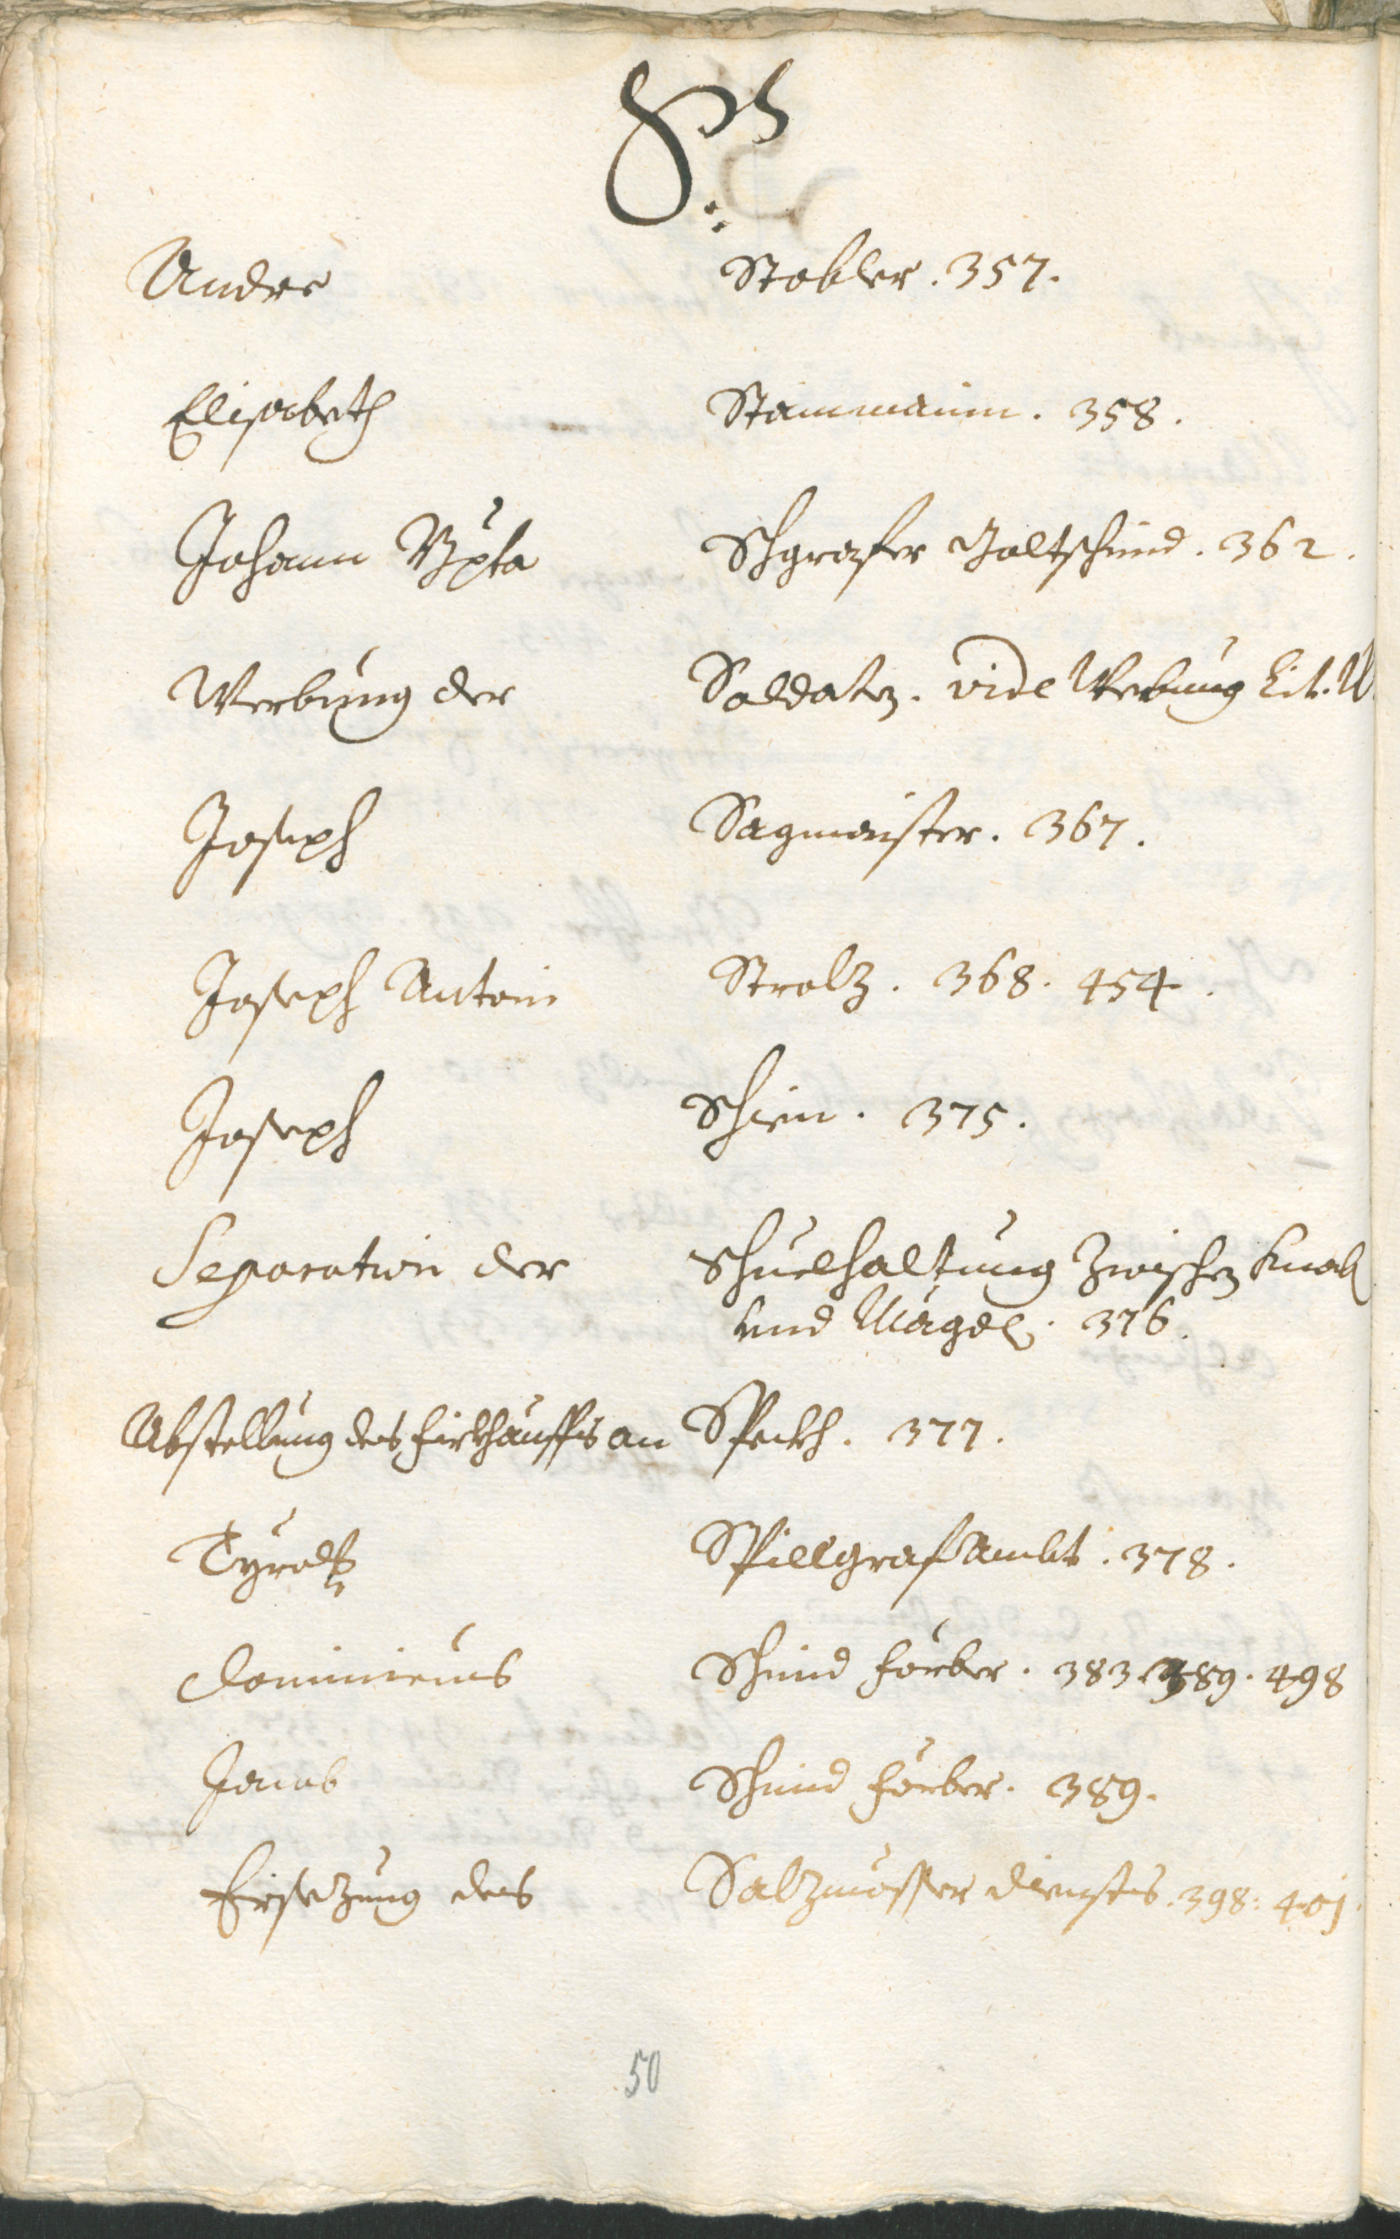 S.
Andre Stobler. 357.
Elisabeth Stammanin. 358.
Johann Bpta Schgrafer Goltschmid. 362.
Werbung der Soldaten. vide Werbung Lit. W.
Joseph Sagmaister. 367.
Joseph Antoni Strolz. 368. 454.
Joseph Schien. 375.
Separation der Schuelhaltung zwischen Knab
und Mägdl. 376.
Abstellung des firkhauffs an Speckh. 377.
Tyrolß Spillgraf Ambt. 378.
Dominicus Schmid färber. 383. 389. 498
Jacob Schmid färber. 389.
Ersezung des Salzmösser diensts. 398. 401.
50